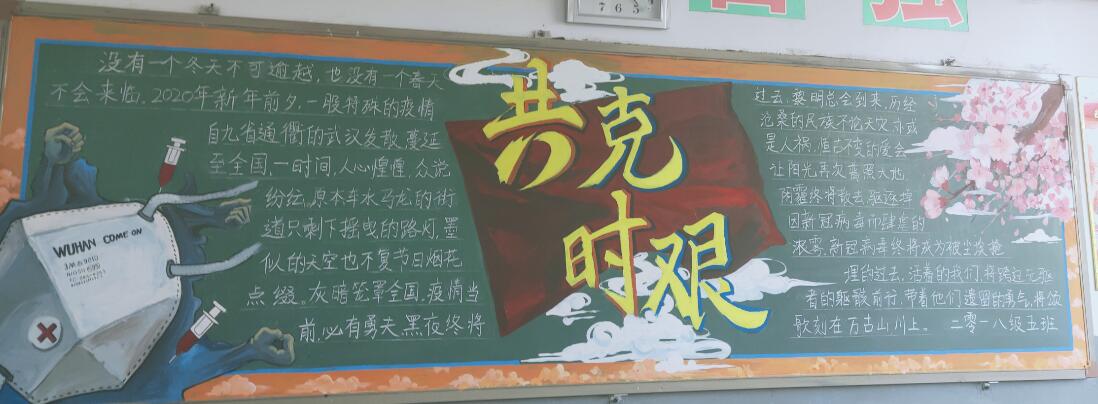 没有一个冬天不可逾越，也没有一个春天
不会来临。2020年新年前夕，一股特殊的疫情
自九省通衢的武汉发散，蔓延
至全国，一时间，人心惶惶，众说
纷纭，原本车水马龙的街
道只剩下摇曳的路灯，墨
似的天空也不复节日烟花
点缀。灰暗笼罩全国，疫情当
前，必有勇夫，黑夜终将
共克
时艰
过去，黎明总会到来，历经
沧桑的民族不论天灾，亦或
是人祸，恒古不变的爱会
让阳光再次普照大地，
阴霾终将散去，驱逐掉
因新冠病毒而肆虐的
浓雾，新冠病毒终将成为被尘埃掩
埋的过去，活着的我们，将踏过先驱
者的躯骸前行，带着他们遗留的勇气，将颂
歌刻在万古山川上。 二零一八级五班
WUHAN COME ON
765
强